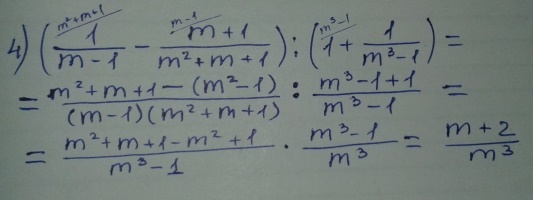 4) (m²+m+1 1/(m-1) - m-1 (m+1)/(m²+m+1)) : (m³-1 1 + 1/(m³-1)) =
= (m²+m+1-(m²-1))/((m-1)(m²+m+1)) : (m³-1+1)/(m³-1) =
= (m²+m+1-m²+1)/(m³-1) · (m³-1)/m³ = (m+2)/m³